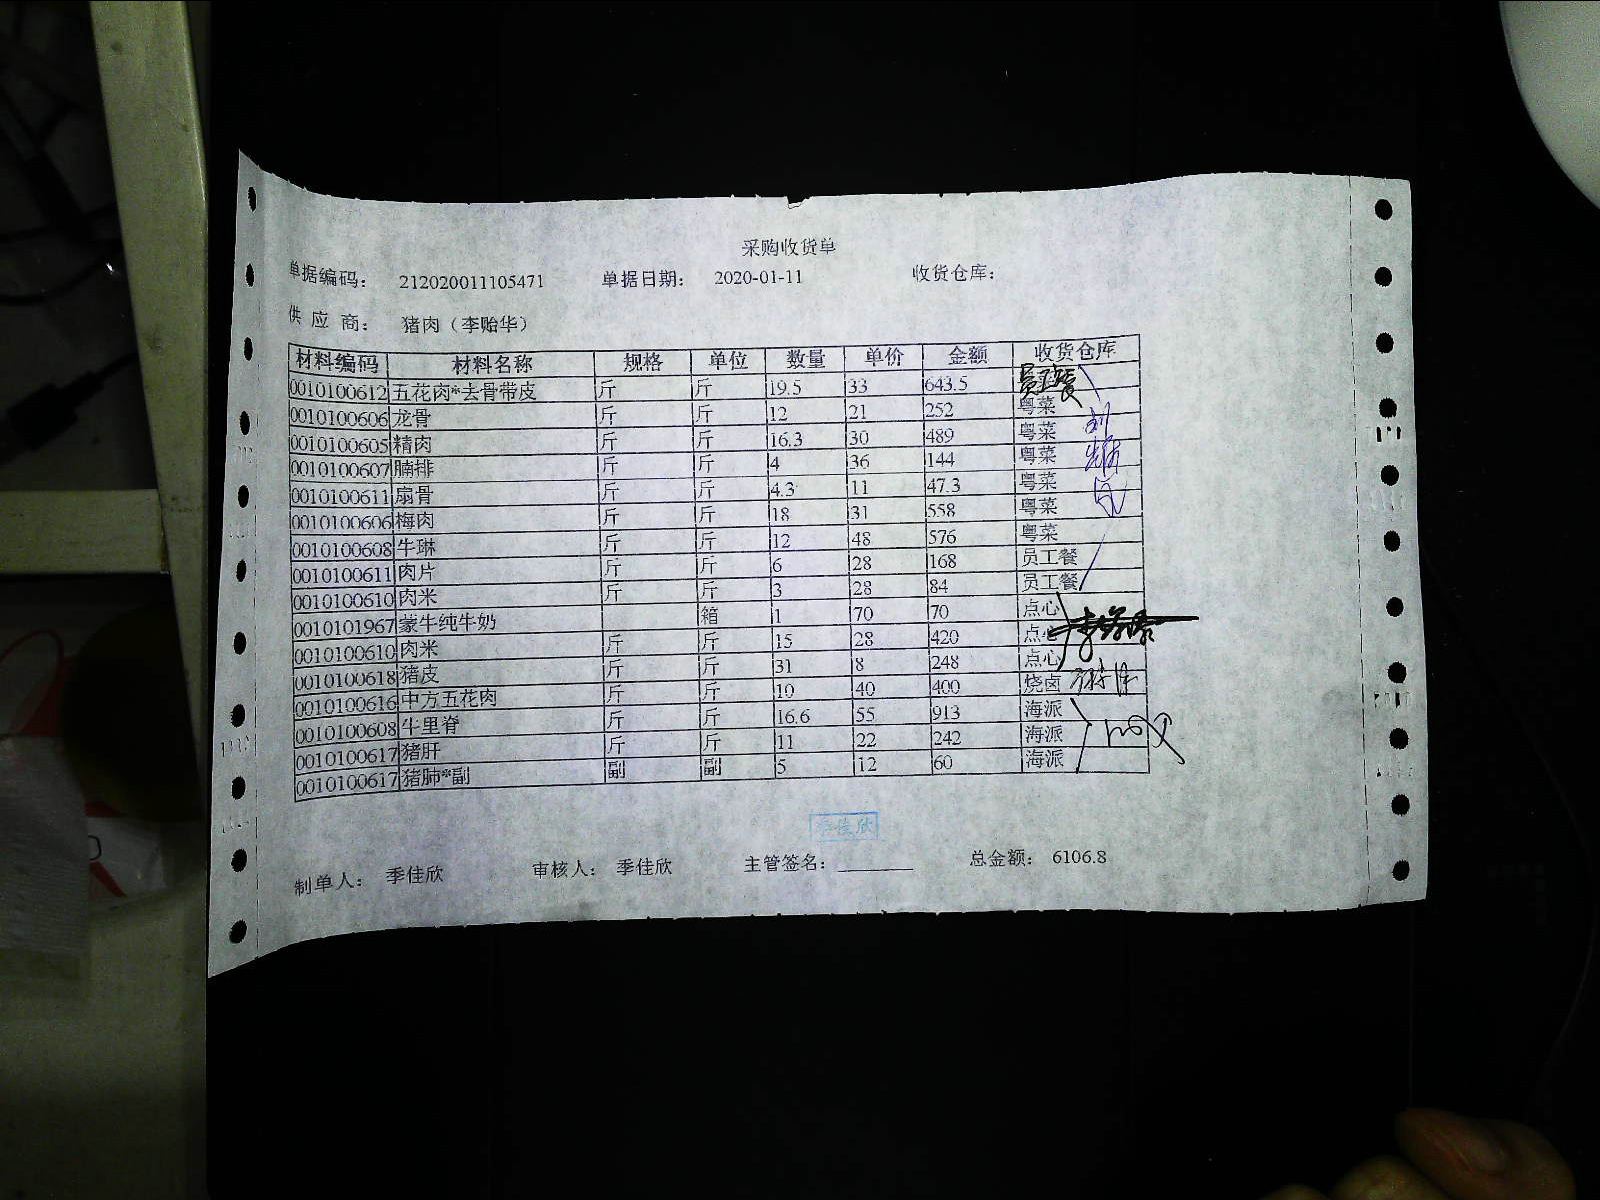 采购收货单
单据编码: 212020011105471 单据日期: 2020-01-11 收货仓库:
供 应 商: 猪肉（李贻华）
材料编码 材料名称 规格 单位 数量 单价 金额 收货仓库
0010100612 五花肉*去骨带皮 斤 斤 19.5 33 643.5
0010100606 龙骨 斤 斤 12 21 252 粤菜
0010100605 精肉 斤 斤 16.3 30 489 粤菜
0010100607 腩排 斤 斤 4 36 144 粤菜
0010100611 扇骨 斤 斤 4.3 11 47.3 粤菜
0010100606 梅肉 斤 斤 18 31 558 粤菜
0010100608 牛琳 斤 斤 12 48 576 粤菜
0010100611 肉片 斤 斤 6 28 168 员工餐
0010100610 肉米 斤 斤 3 28 84 员工餐
0010101967 蒙牛纯牛奶 箱 1 70 70 点心
0010100610 肉米 斤 斤 15 28 420 点心
0010100618 猪皮 斤 斤 31 8 248 点心
0010100616 中方五花肉 斤 斤 10 40 400 烧卤
0010100608 牛里脊 斤 斤 16.6 55 913 海派
0010100617 猪肝 斤 斤 11 22 242 海派
0010100617 猪肺*副 副 副 5 12 60 海派
季佳欣
制单人: 季佳欣 审核人: 季佳欣 主管签名: 总金额: 6106.8